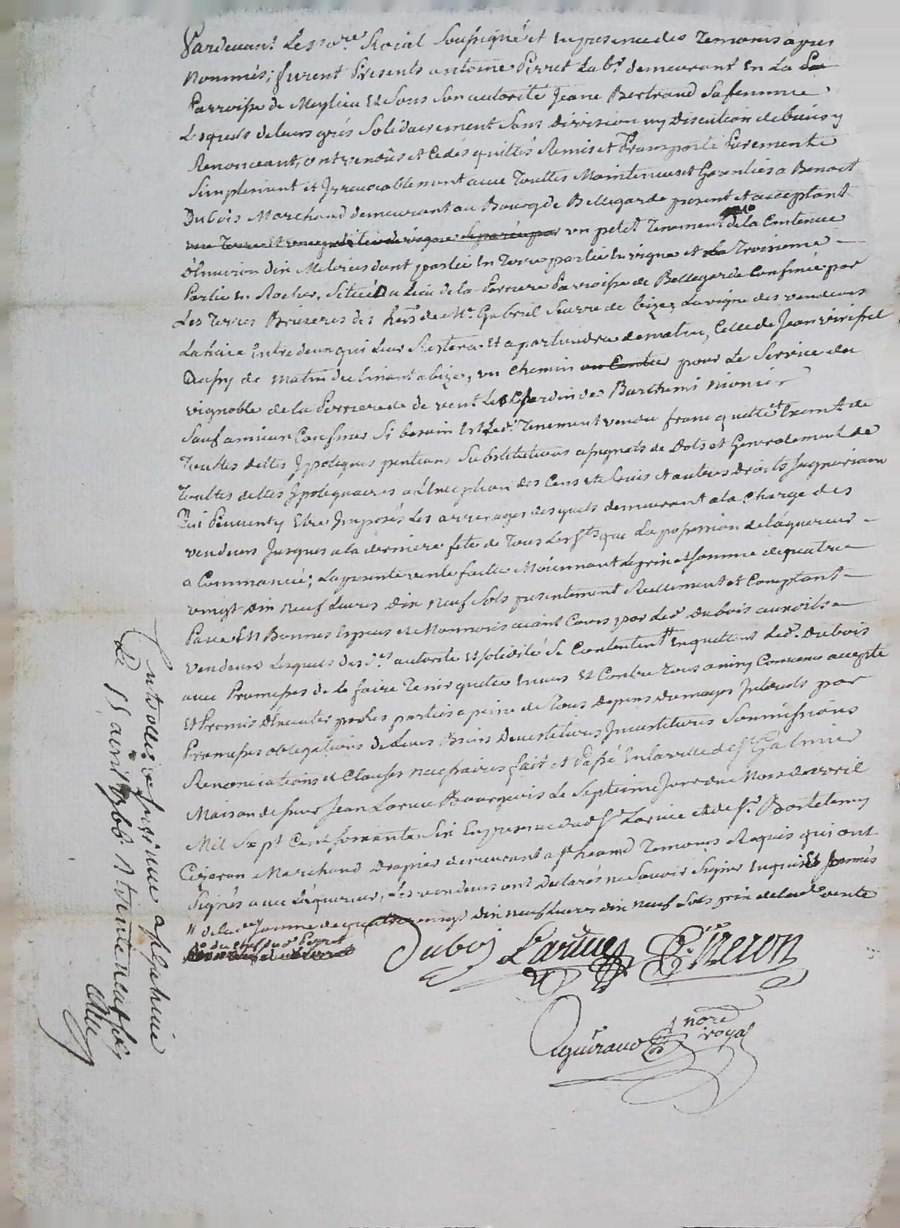 Pardevant Le no.re Roial Soussigné et En presence des Temoins apres
Nommés; furent Presents antoine Pirret Lab.r demeurant En La
Parroisse de Meylieu Et Sous Son autorité Jeane Bertrand Sa femme
Lesquels de leurs grés Solidairement Sans Division ny Discution de biens y
Renonceant, ont vendûs et Cedes quittés Remis et Transporté Purement
Simplement et Irrevocablement avec Touttes Maintenues et Garenties a Benoit
Dubois Marchand demeurant au Bourg de Bellegarde present et acceptant
un petit Tenement de la Contenue
d'Environ dix Meterées dont partie En Terre partie En vigne et La Troisieme
Partie en Rocher, Situé Du Lieu de la Perriere Parroisse de Bellegarde Confinée par
Les Terres Bruyeres des heirs de Mr Gabriel de bize, La vigne des vendeurs
La haie Entre deux qui Leur Restera Et apartiendra de matin, Celle de Jean
Dupuy de matin declinant a bize, un Chemin pour Le Service du
vignoble de la Perriere de vent Le Jardin de Barthemi
Sauf a mieux Confiner Si besoin Est Led. Tenement vendu franc quitte et Exempt de
Touttes dettes Ypoteques pentions Substitutions apegnats de Dots et Generalement de
Touttes dettes Ypotequaires a L'Exception des Cens et Lois et autres Droits Segneriaux
Qui Peuvent y Etre Imposés Les arrerages desquels demeurent a la Charge des
vendeurs Jusques a la derniere fete de Tous les Sts que La possession de L'aquereur
a Commancée; La presente vente faitte Moiennant Le prix et Somme de quatre
vingt dix neuf Livres dix neuf Sols presentement Reelement et Comptant
Paiée En Bonnes Especes et Monnoies aiant Cours par Led. Dubois auxdits
vendeurs Lesquels des.ts autorité Et Solidité Se Contentent En quittent Led. Dubois
avec Promesses de le faire Tenir quitte Envers Et Contre Tous ainsy Convenu accepté
Et Promis D'Executer par les parties a peine de Tous Depens Domages Interets par
Promesses obligations de Leurs Biens Devestitures Investitures Soumissions
Renonciations et Clauses necessaires, fait et Passé En la ville de St Galmier
Maison de Sieur Jean Larue Bourgeois Le Septieme Jour du Mois d'avril
Mil Sept Cent Soixante Six En presence dud. Sr. Larue et de Sr. Bartelemy
Marchand Drapier demeurant a St heand Temoins Requis qui ont
Signés avec L'aquereur, Les vendeurs ont Declarés ne Savoir Signer Enquis Et Sommés
de lad. Somme de quatre vingt dix neuf Livres dix neuf Sols prix de lad. vente
Dubois Larue
notre
royal
Le 15 avril 1766 R trente neuf sols